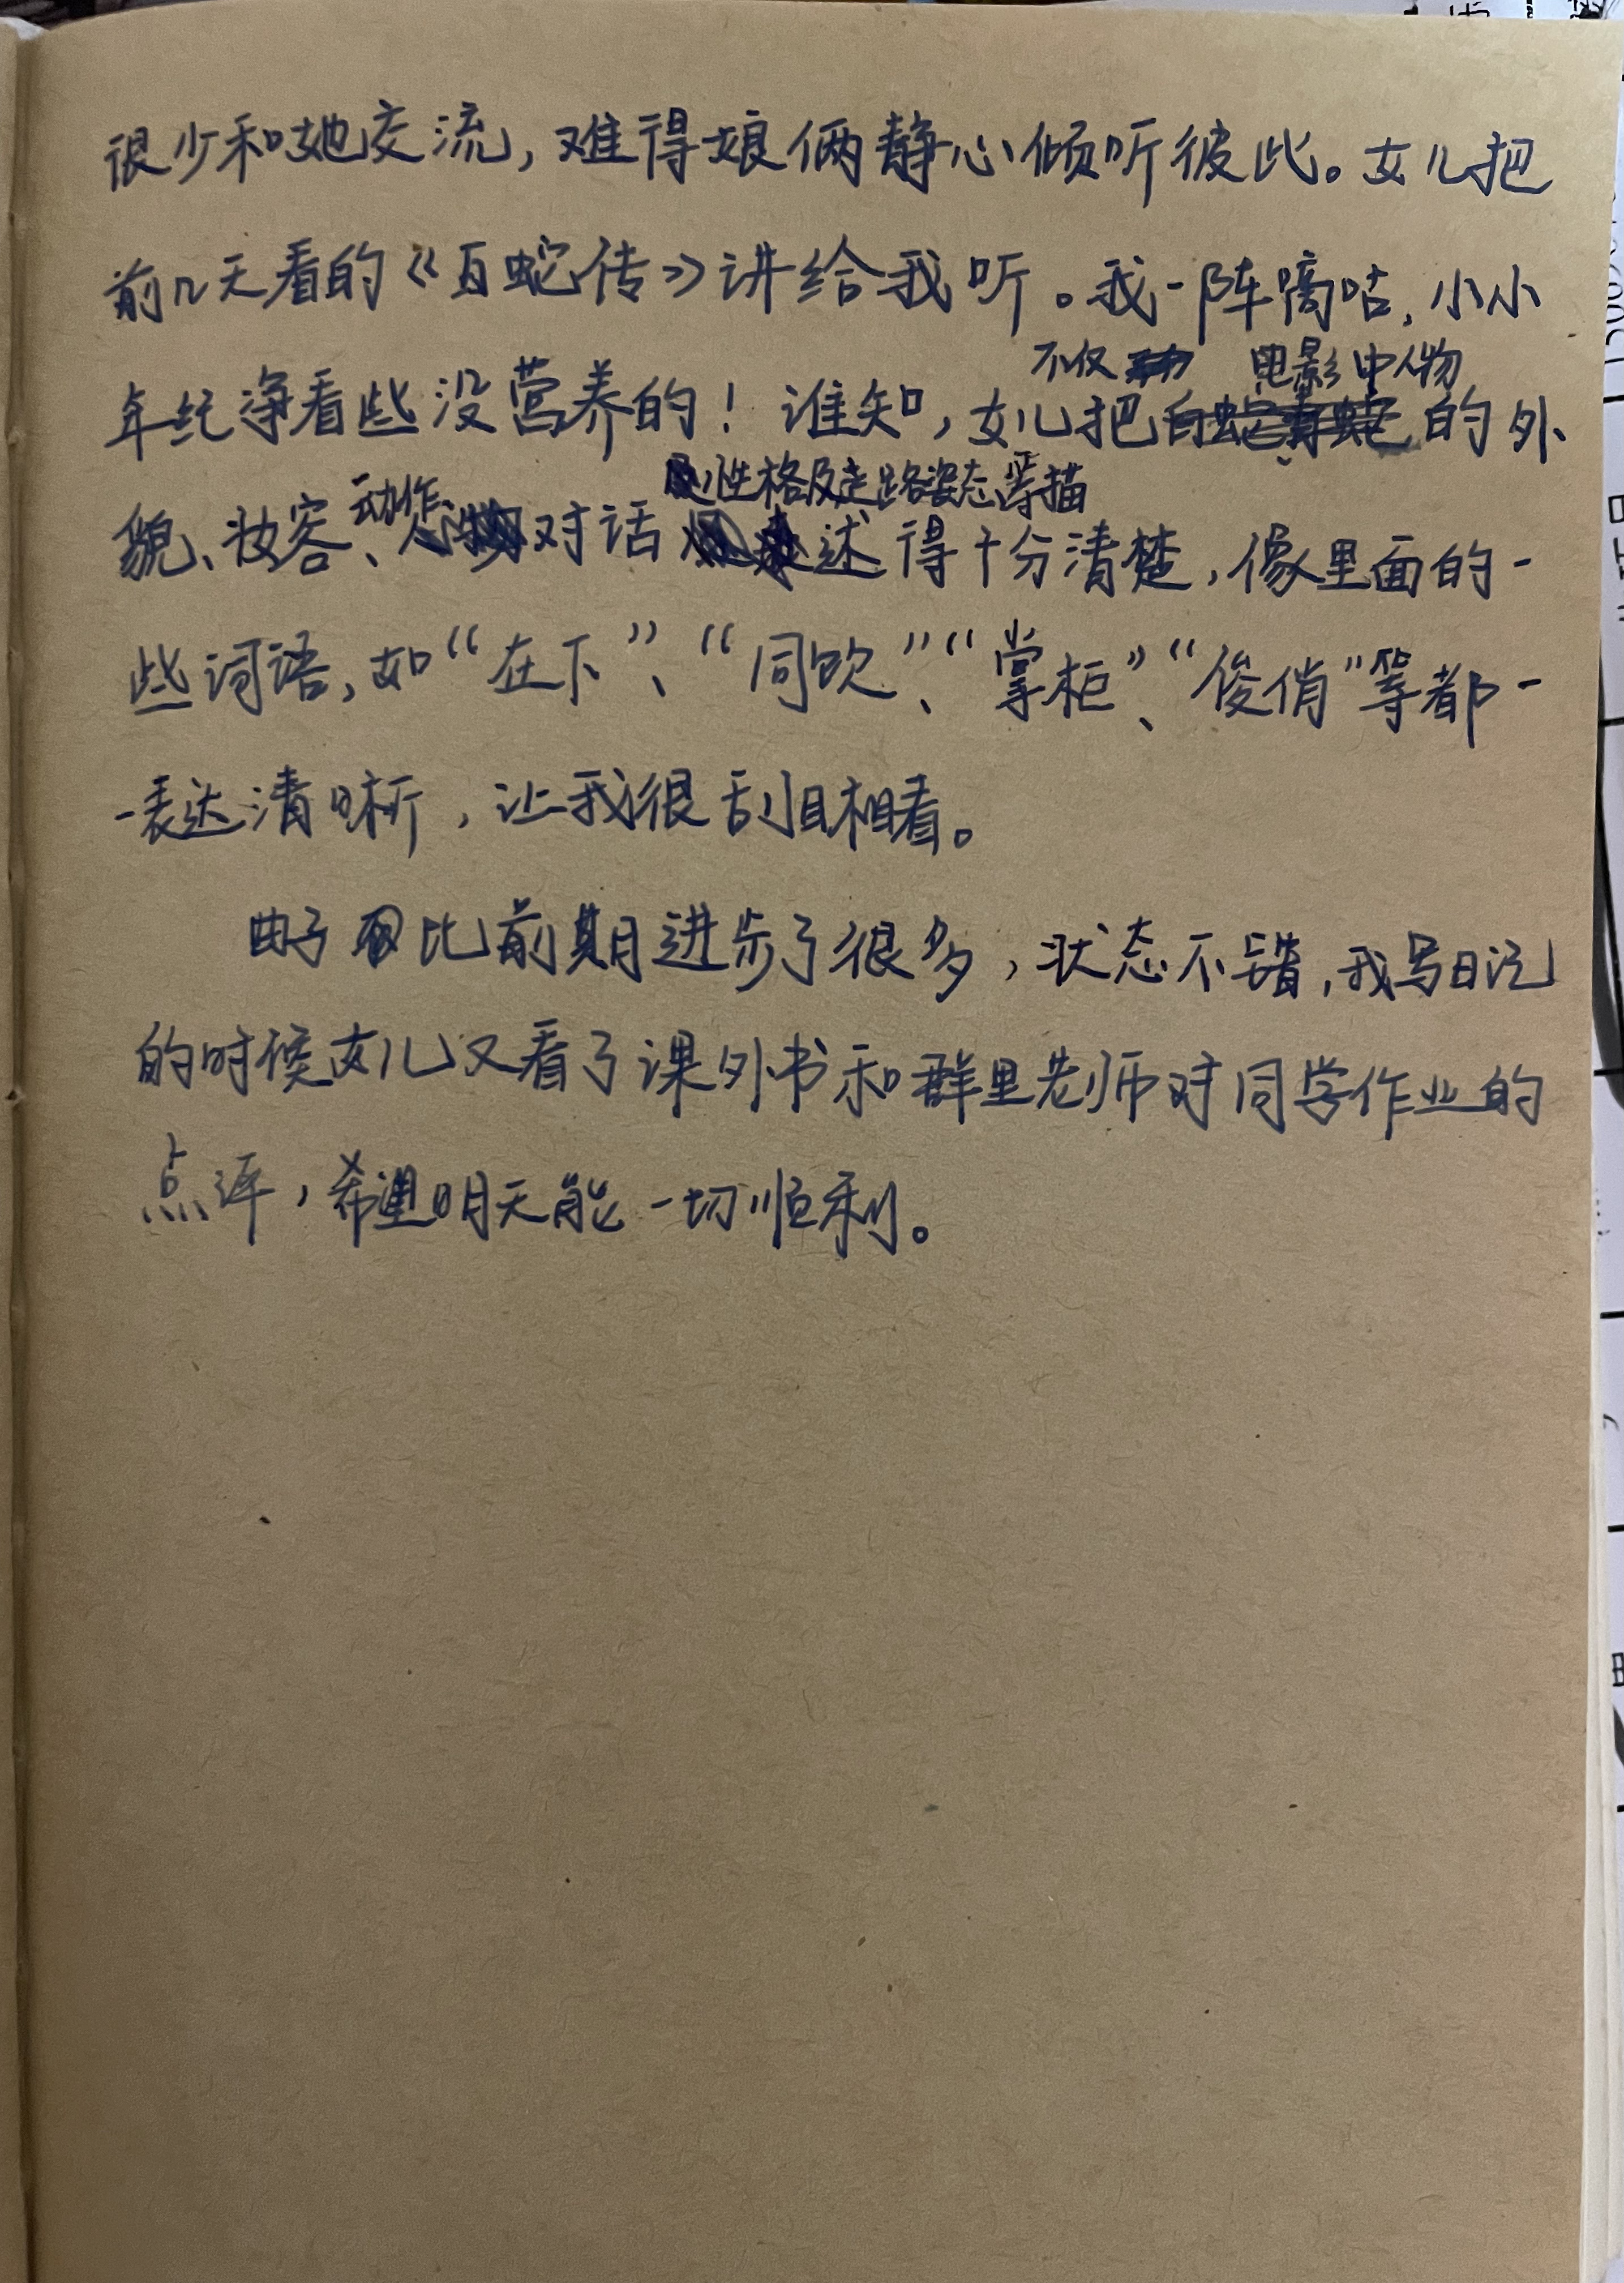 很少和她交流，难得娘俩静心倾听彼此。女儿把
前几天看的《白蛇传》讲给我听。我一阵嘀咕，小小
不仅 电影中人物
年纪净看些没营养的！谁知，女儿把白蛇青蛇的外
动作、 性格及走路姿态等描
貌、妆容、对话述得十分清楚，像里面的一
些词语，如“在下”、“同饮”、“掌柜”、“俊俏”等都一
一表达清晰，让我很刮目相看。
由于比前期进步了很多，状态不错，我写日记
的时候女儿又看了课外书和群里老师对同学作业的
点评，希望明天能一切顺利。